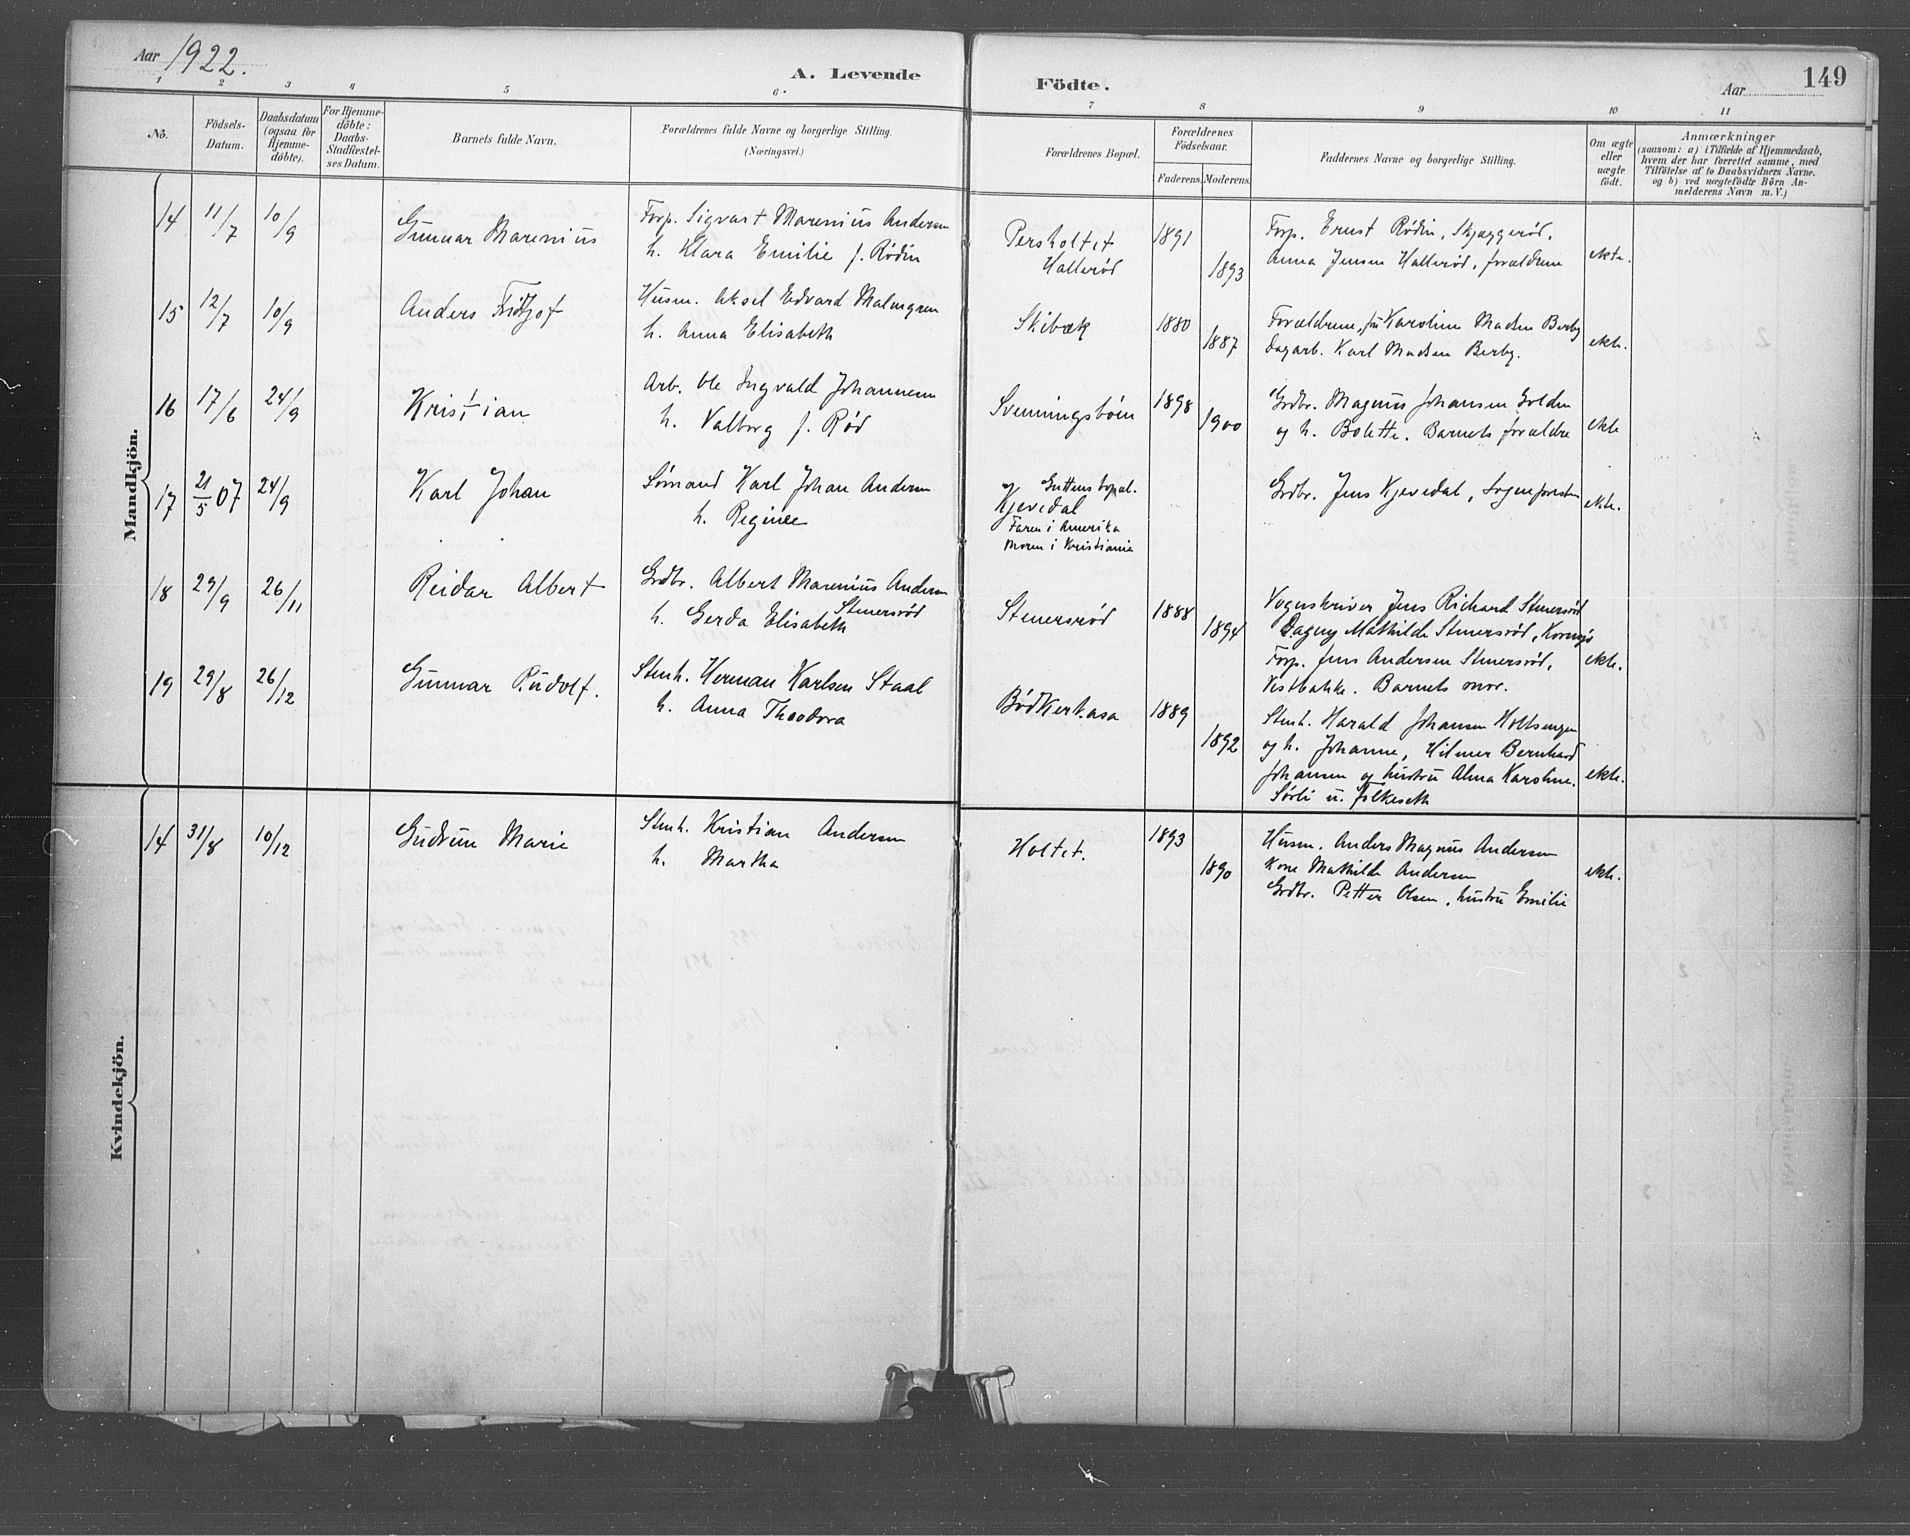 Aar 1922.
A. Levende Födte.
Aar
149
1 2 3 4 5 6 7 8 9 10 11
No.
Födsels-Datum.
Daabsdatum (ogsaa for Hjemme-döbte).
For Hjemme-döbte: Daabs-Stadfæstel-ses Datum.
Barnets fulde Navn.
Forældrenes fulde Navne og borgerlige Stilling. (Næringsvei.)
Forældrenes Bopæl.
Forældrenes Födselsaar.
Faderens. Moderens.
Faddernes Navne og borgerlige Stilling.
Om ægte eller uægte födt.
Anmærkninger
(saasom: a) i Tilfælde af Hjemmedaab,
hvem der har forrettet samme, med
Tilföielse af to Daabsvidners Navne.
og b) ved uægtefödte Börn An-
melderens Navn m. V.)
Mandkjön.
14 11/7 10/9 Gunnar Marenius
Forp. Sigvart Marenius Andersen
h. Klara Emilie f. Rødin
Persholtet
Hallerød
1891
1893
Forp. Ernst Rødin, Skjæggerød,
Anna Jensen Hallerød, forældrene
ekte.
15 12/7 10/9 Anders Fridtjof
Husm. Aksel Edvard Malmgren
h. Anna Elisabeth
Skibæk
1880
1887
Forældrene, fru Karoline Madsen Berby
Dagarb. Karl Madsen Berby.
ekte.
16 17/6 24/9 Kristian
Arb. Ole Ingvald Johannesen
h. Valborg f. Rød
Svenningsbøen
1898
1900
Grdbr. Magnus Johansen Holden
og h. Bolette. Barnets forældre
ekte
17 21/5 07 24/9 Karl Johan
Sømand Karl Johan Andersen
h. Reginee
Guttens bopæl.
Kjevedal
Faren i Amerika
Moren i Kristiania
Grdbr. Jens Kjevedal, Sognepresten
ekte.
18 29/9 26/11 Reidar Albert
Grdbr. Albert Marenius Andersen
Stenersrød
h. Gerda Elisabeth
Stenersrød
1888
1894
Vognskriver Jens Richard Stenersrød
Dagny Mathilde Stenersrød, Kornsjø
Forp. Jens Andersen Stenersrød,
Vestbakke. Barnets mor.
ekte.
19 29/8 26/12 Gunnar Rudolf.
Stenh. Herman Karlsen Staal
h. Anna Theodora
Bødkerkasa
1889
1892
Stenh. Harald Johansen Holtsengen
og h. Johanne, Hilmer Bernhard
Johansen og hustru Alma Karoline.
Sørli u. Folkeseth
ekte.
Kvindekjön.
14 31/8 10/12 Gudrun Marie
Stenh. Kristian Andersen
h. Martha
Holtet.
1893
1890
Husm. Anders Magnus Andersen
Kone Mathilde Andersen
Grdbr. Petter Olsen, hustru Emilie
ekte.